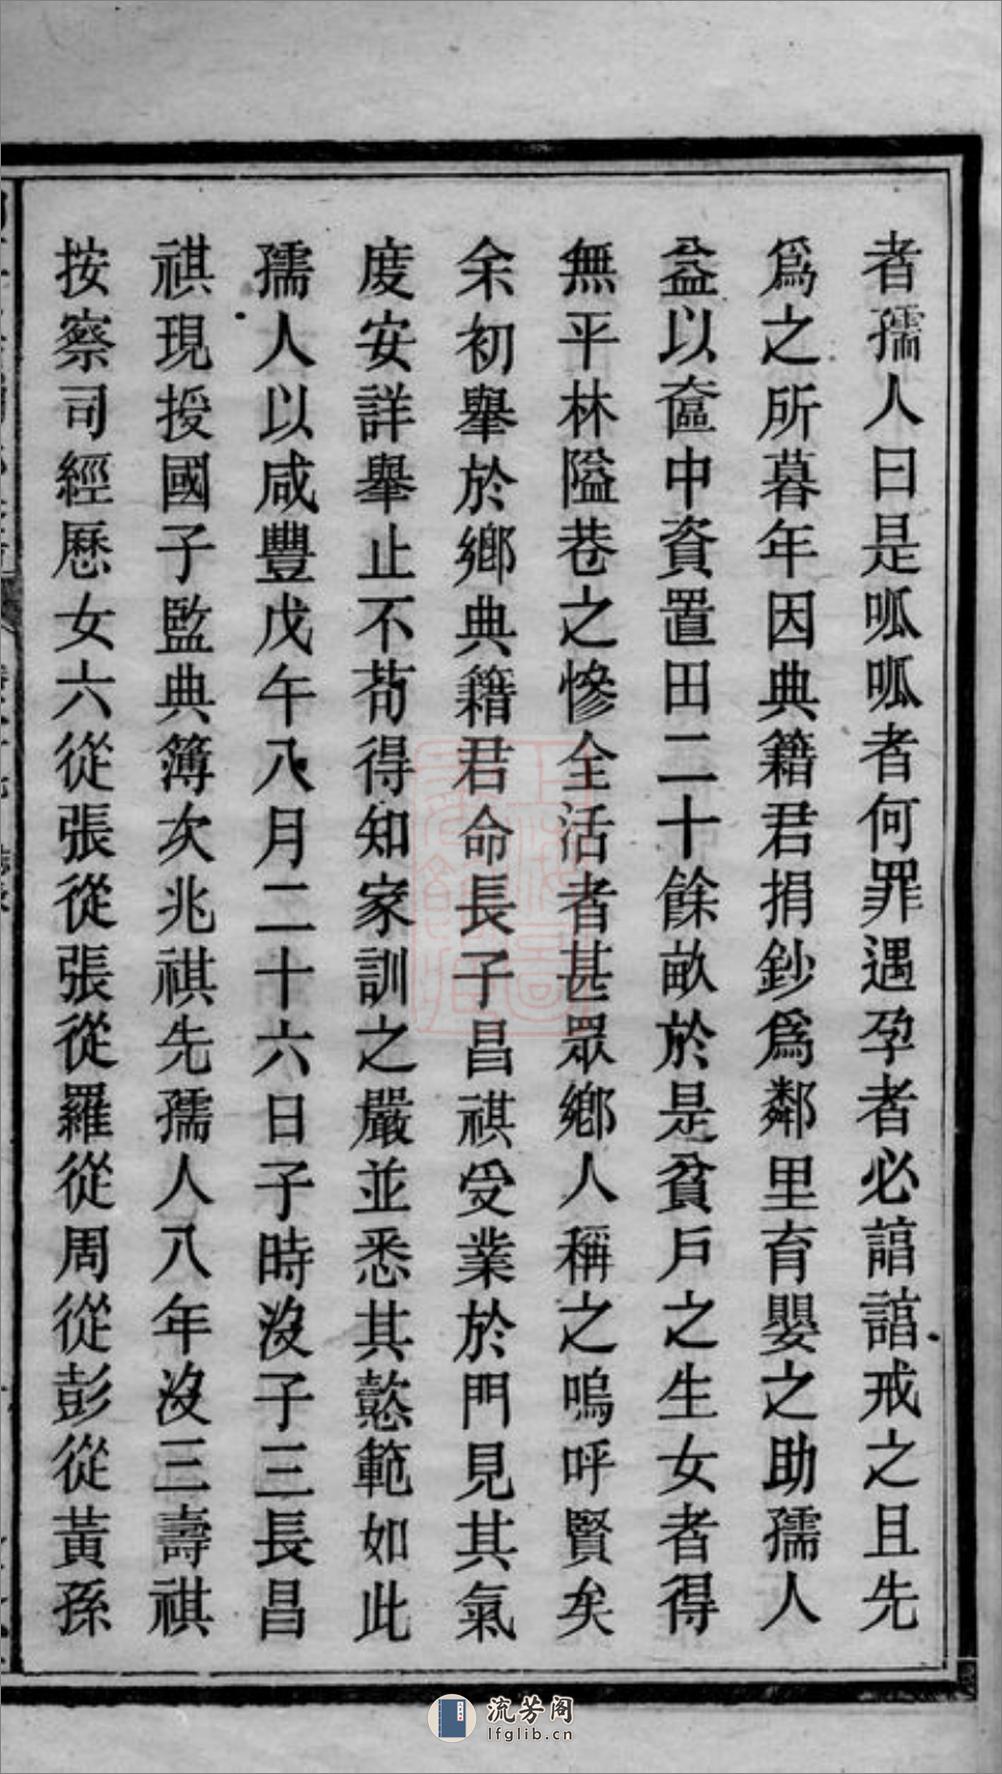 者孺人曰是呱呱者何罪遇孕者必諳諳戒之且先
爲之所暮年因典籍君捐鈔爲鄰里育嬰之助孺人
益以奩中資置田二十餘畝於是貧戶之生女者得
無平林隘巷之慘全活者甚眾鄉人稱之嗚呼賢矣
余初舉於鄉典籍君命長子昌祺受業於門見其氣
度安詳舉止不苟得知家訓之嚴並悉其懿範如此
孺人以咸豐戊午八月二十六日子時沒子三長昌
祺現授國子監典簿次兆祺先孺人八年沒三壽祺
按察司經歷女六從張從張從羅從周從彭從黃孫
流芳阁
lfglib.cn